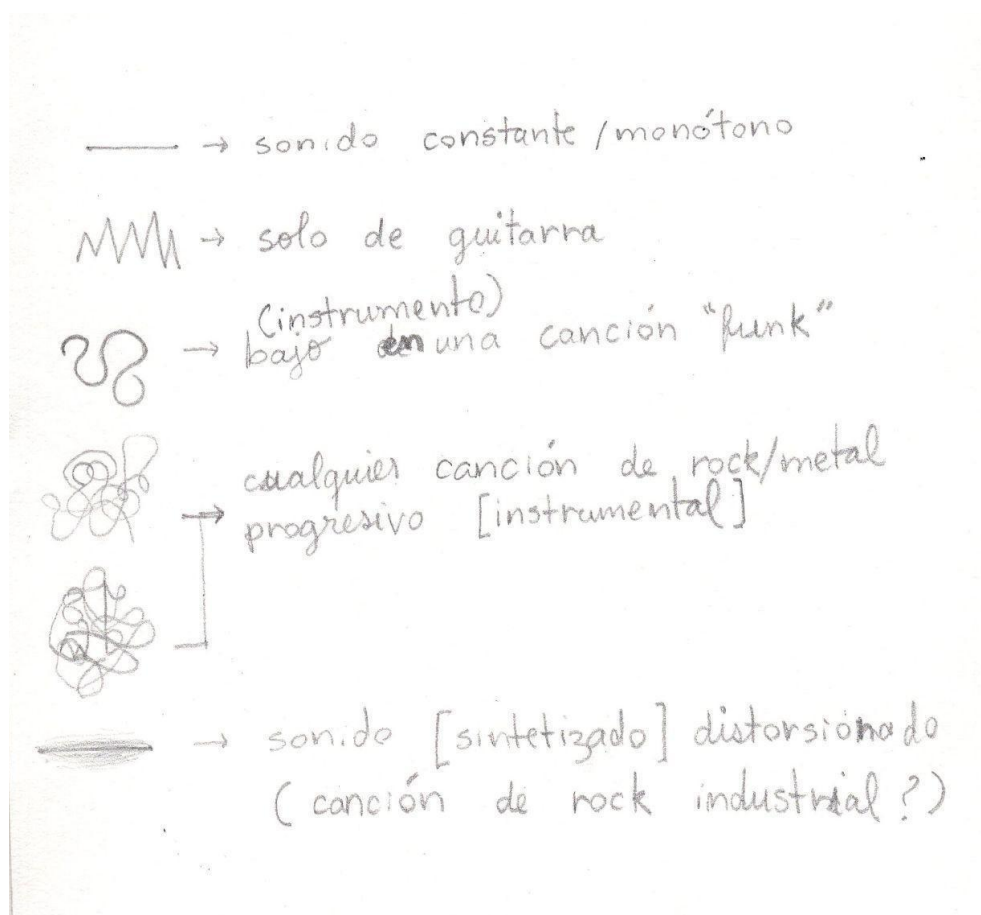 → sonido constante/monótono
→ solo de guitarra
(instrumento)
→ bajo en una canción "funk"
→ cualquier canción de rock/metal
progresivo [instrumental]
→ sonido [sintetizado] distorsionado
(canción de rock industrial?)